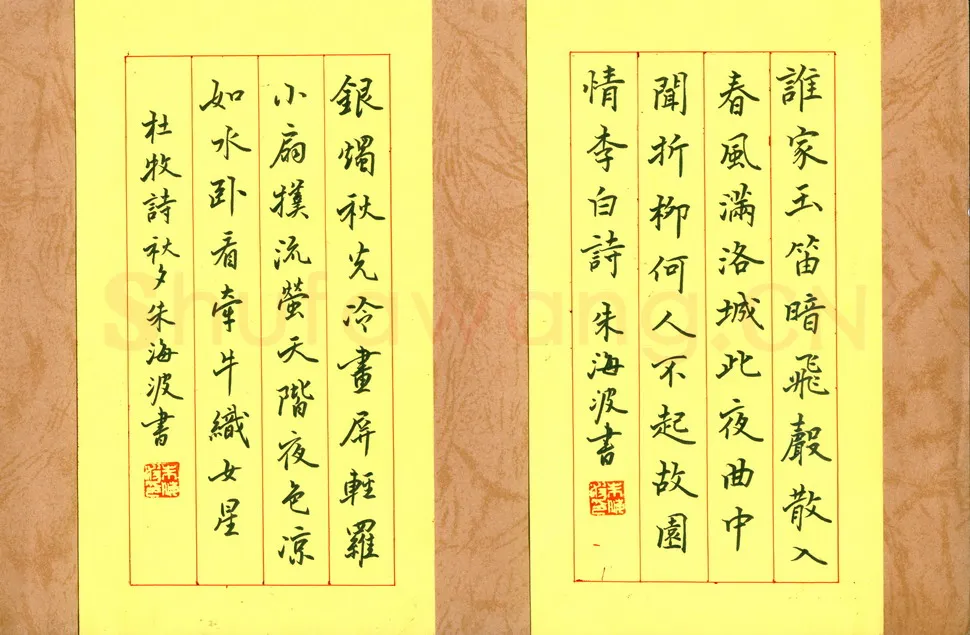 誰家玉笛暗飛聲散入
春風滿洛城此夜曲中
聞折柳何人不起故園
情李白詩 朱海波書
銀燭秋光冷畫屏輕羅
小扇撲流螢天階夜色涼
如水卧看牽牛織女星
杜牧詩秋夕朱海波書
Shufawang.CN